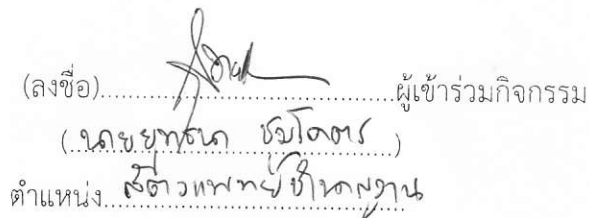 (ลงชื่อ)......................................ผู้เข้าร่วมกิจกรรม
(นายยุทธนา ชุบโคตร)
ตำแหน่ง สัตวแพทย์ชำนาญงาน